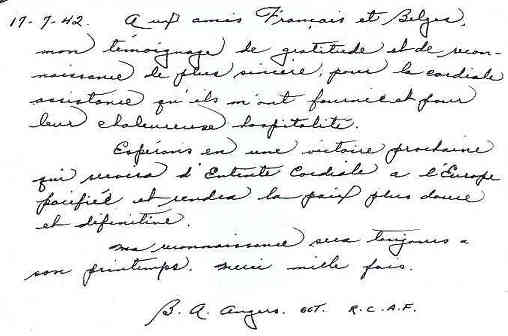 17-7-42. Aux amis Français et Belges,
mon témoignage de gratitude et de recon-
naissance de plus sincère, pour la cordiale
assistance qu'ils m'ont fournie et pour
leur chaleureuse hospitalité.
Espérons en une victoire prochaine
qui verra d'Entente Cordiale a l'Europe
pacifiée et rendra la paix plus douce
et définitive.
Ma reconnaissance sera toujours a
son printemps. Merci mille fois.
B. A. Angers. R.C.A.F.